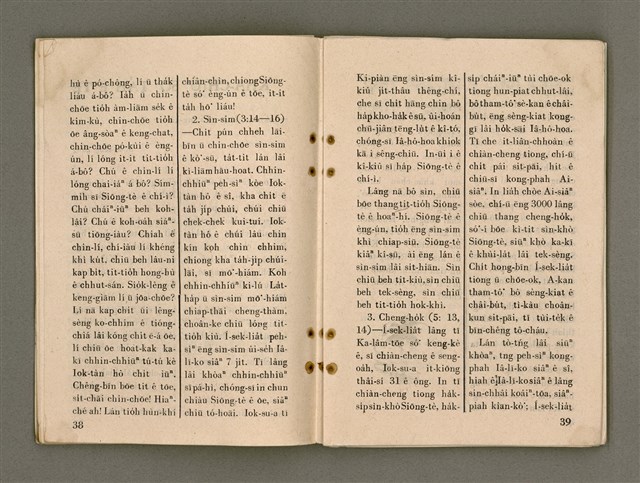 hú ê pó-chōng, lí ū thák
liáu á-bô? Iáh ū chin-
chōe tióh àm-liām sék ê
kim-kù, chin-chōe tióh
ōe âng-sòaⁿ ê keng-chat,
chin-chōe pó-kùi ê èng-
ún, lí lóng it-it tit-tióh
á-bô? Chù ê chin-lí lí
lóng chai-iáⁿ á bô? Sím-
mih sī Siōng-tè ê chí-ì?
Chú cháiⁿ-iūⁿ beh koh-
lâi? Chú ê koh-oáh siáⁿ-
sū tiōng-iàu? Chiah ê
chin-lí, chí-iàu lí khéng
khì kút, chiū beh láu-ni
kap bit, tit-tióh hong-hú
ê chhut-sán. Siók-lêng ê
keng-giām lí ū jōa-chōe?
Lí nā kap chit ūi lêng-
sèng ko-chhim ê tiōng-
chiá lâi kóng chit ê-á ōe,
lí chiū ōe hoat-kak ka-
kī chhin-chhiūⁿ tú-tú kè
Iok-tàn hô chit iūⁿ.
Chêng-bīn bōe tit ê tōe,
sit-chāi chin-chōe! Hiaⁿ-
ché ah! Lán tióh hùn-khí
38
chiân-chìn, chiong Siōng-
tè só' èng-ún ê tōe, it-it
táh hō' liáu!
2. Sìn-sim (3:14—16)
—Chit pún chheh lāi-
bīn ū chin-chōe sìn-sim
ê kò'-sū, tát-tit lán lâi
kì-liām hāu-hoat. Chhin-
chhiūⁿ peh-sìⁿ kòe Iok-
tàn hô ê sî, kha chit ē
táh jip chúi, chúi chiū
chek-chek kui-tui. Iok-
tàn hô ê chúi láu chin
kín koh chin chhim,
chiong kha táh-jip chúi-
lāi, sī mō'-hiám. Koh
chhin-chhiūⁿ kì-lū Lát-
háp ū sìn-sim mō'-hiám
chiap-thāi cheng-thàm,
choân-ke chiū lóng tit-
tióh kiù. Í-sek-liát peh-
sìⁿ ēng sìn-sim ûi-séh Iâ-
lī-ko siâⁿ 7 jit. Tī lâng
lâi khòaⁿ chhin-chhiūⁿ
sī pá-hì, chóng-sī in chun
chiàu Siōng-tè ê ōe, siâⁿ
chiū tó-hoāi. Iok-su-a tì
Ki-piàn ēng sìn-sim kî-
kiû jit-thâu thêng-chí,
che sī chit hāng chin bô
háp kho-hák ê sū, ùi-hoán
chū-jiân tēng-lút ê kî-tó,
chóng-sī Iâ-hô-hoa khiok
kā i sêng-chiū. In-ūi i ê
kî-kiû sī háp Siōng-tè ê
chí-ì.
Lâng nā bô sìn, chiū
bōe thang tit-tióh Siōng-
tè ê hoaⁿ-hí. Siōng-tè ê
èng-ún, tióh ēng sìn-sim
khì chiap-siū. Siōng-tè
kiâⁿ kî-sū, ài ēng lán ê
sìn-sim lâi sit-hiān. Sìn
chiū beh tit-kiù, sìn chiū
beh tek-sèng, sìn chiū
beh tit-tióh hok-khì.
3. Cheng-hók (5: 13,
14)—Í-sek-liát lâng tī
Ka-lâm-tōe só' keng-kè
ê, sī chiàn-cheng ê seng-
oáh, Iok-su-a it-kiōng
thâi-sí 31 ê ông. In tī
chiàn-cheng tiong hák-
sip sìn-khò Siōng-tè, hák-
sip cháiⁿ-iūⁿ tùi chōe-ok
tiong hun-piat chhut-lâi,
bô tham-tô' sè-kan ê châi-
bút, ēng sèng-kiat kong-
gī lâi hók-sāi Iâ-hô-hoa.
Tī che it-liân-chhoàn ê
chiàn-cheng tiong, chí-ū
chit pái sit-pāi, hit ê
chiū-sī kong-phah Ai-
siâⁿ. In liáh chòe Ai-siâⁿ
sòe, chí-ū ēng 3000 lâng
chiū thang cheng-hók,
só'-í bōe ki-tit sìn-khò
Siōng-tè, siūⁿ khò ka-kī
ê khùi-lát lâi tek-sèng.
Chit hong-bīn Í-sek-liát
tiong ū chōe-ok, A-kan
tham-tô' bô sèng-kiat ê
châi-bút, tì-kàu choân-
kun sit-pāi, tī tùi-tek ê
bīn-chêng tô-cháu.
Lán tò-tńg lâi siūⁿ
khòaⁿ, tng peh-sìⁿ kong-
phah Iâ-lī-ko siâⁿ ê sî,
hiah ê Iâ-lī-ko siâⁿ ê lâng
sìn-chhái koâiⁿ-tōa, siâⁿ-
piah kian-kò'; Í-sek-liát
39